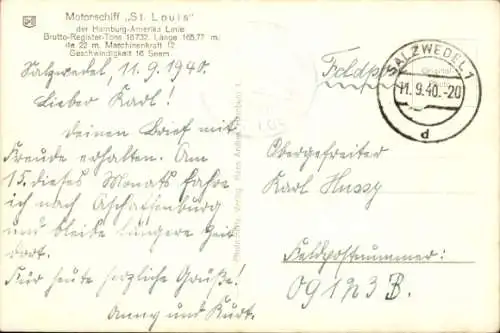 Motorschiff „St. Louis“
der Hamburg-Amerika Linie
Brutto-Register-Tons 16732. Länge 165,77 m.
ite 22 m. Maschinenkraft 12
Geschwindigkeit 16 Seem.
Salzwedel, 11.9.1940.
Lieber Karl!
deinen Brief mit
Freude erhalten. Am
15. dieses Monats fahre
ich nach Aschaffenburg
und bleibe längere Zeit
dort.
Für heute herzliche Grüße!
Anny und Kurt.
Feldpost
SALZWEDEL 1
11.9.40.-20
d
Obergefreiter
Karl Hussy
Feldpostnummer:
09123 B.
Verlag Hans Andres